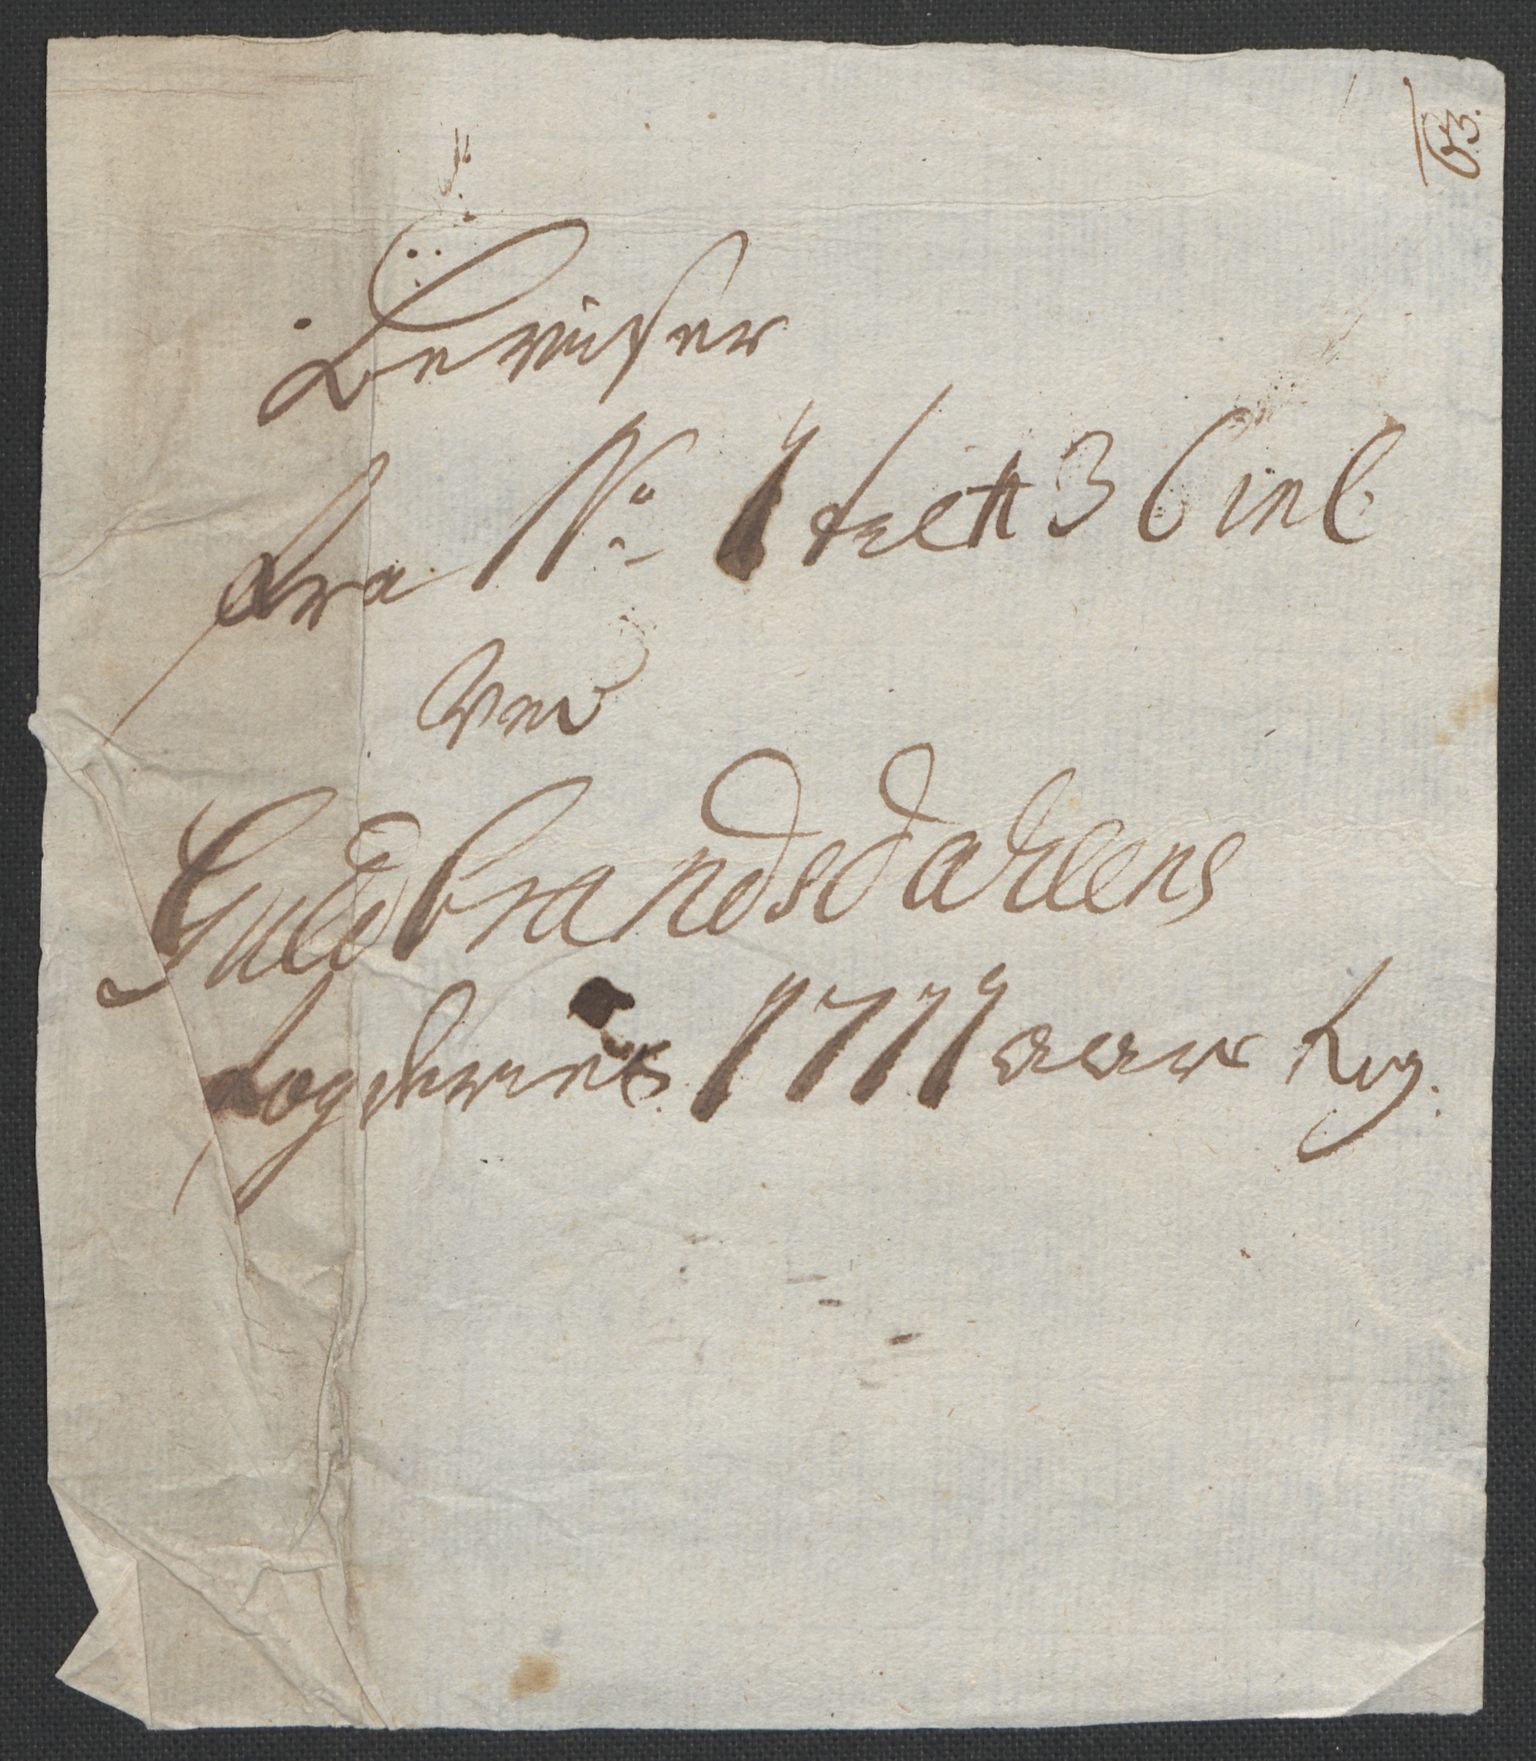 63.
Beviser
fra No 1 till 36 incl
ved
Guldbrandsdahlens
fogderies 1711 aars Reg: